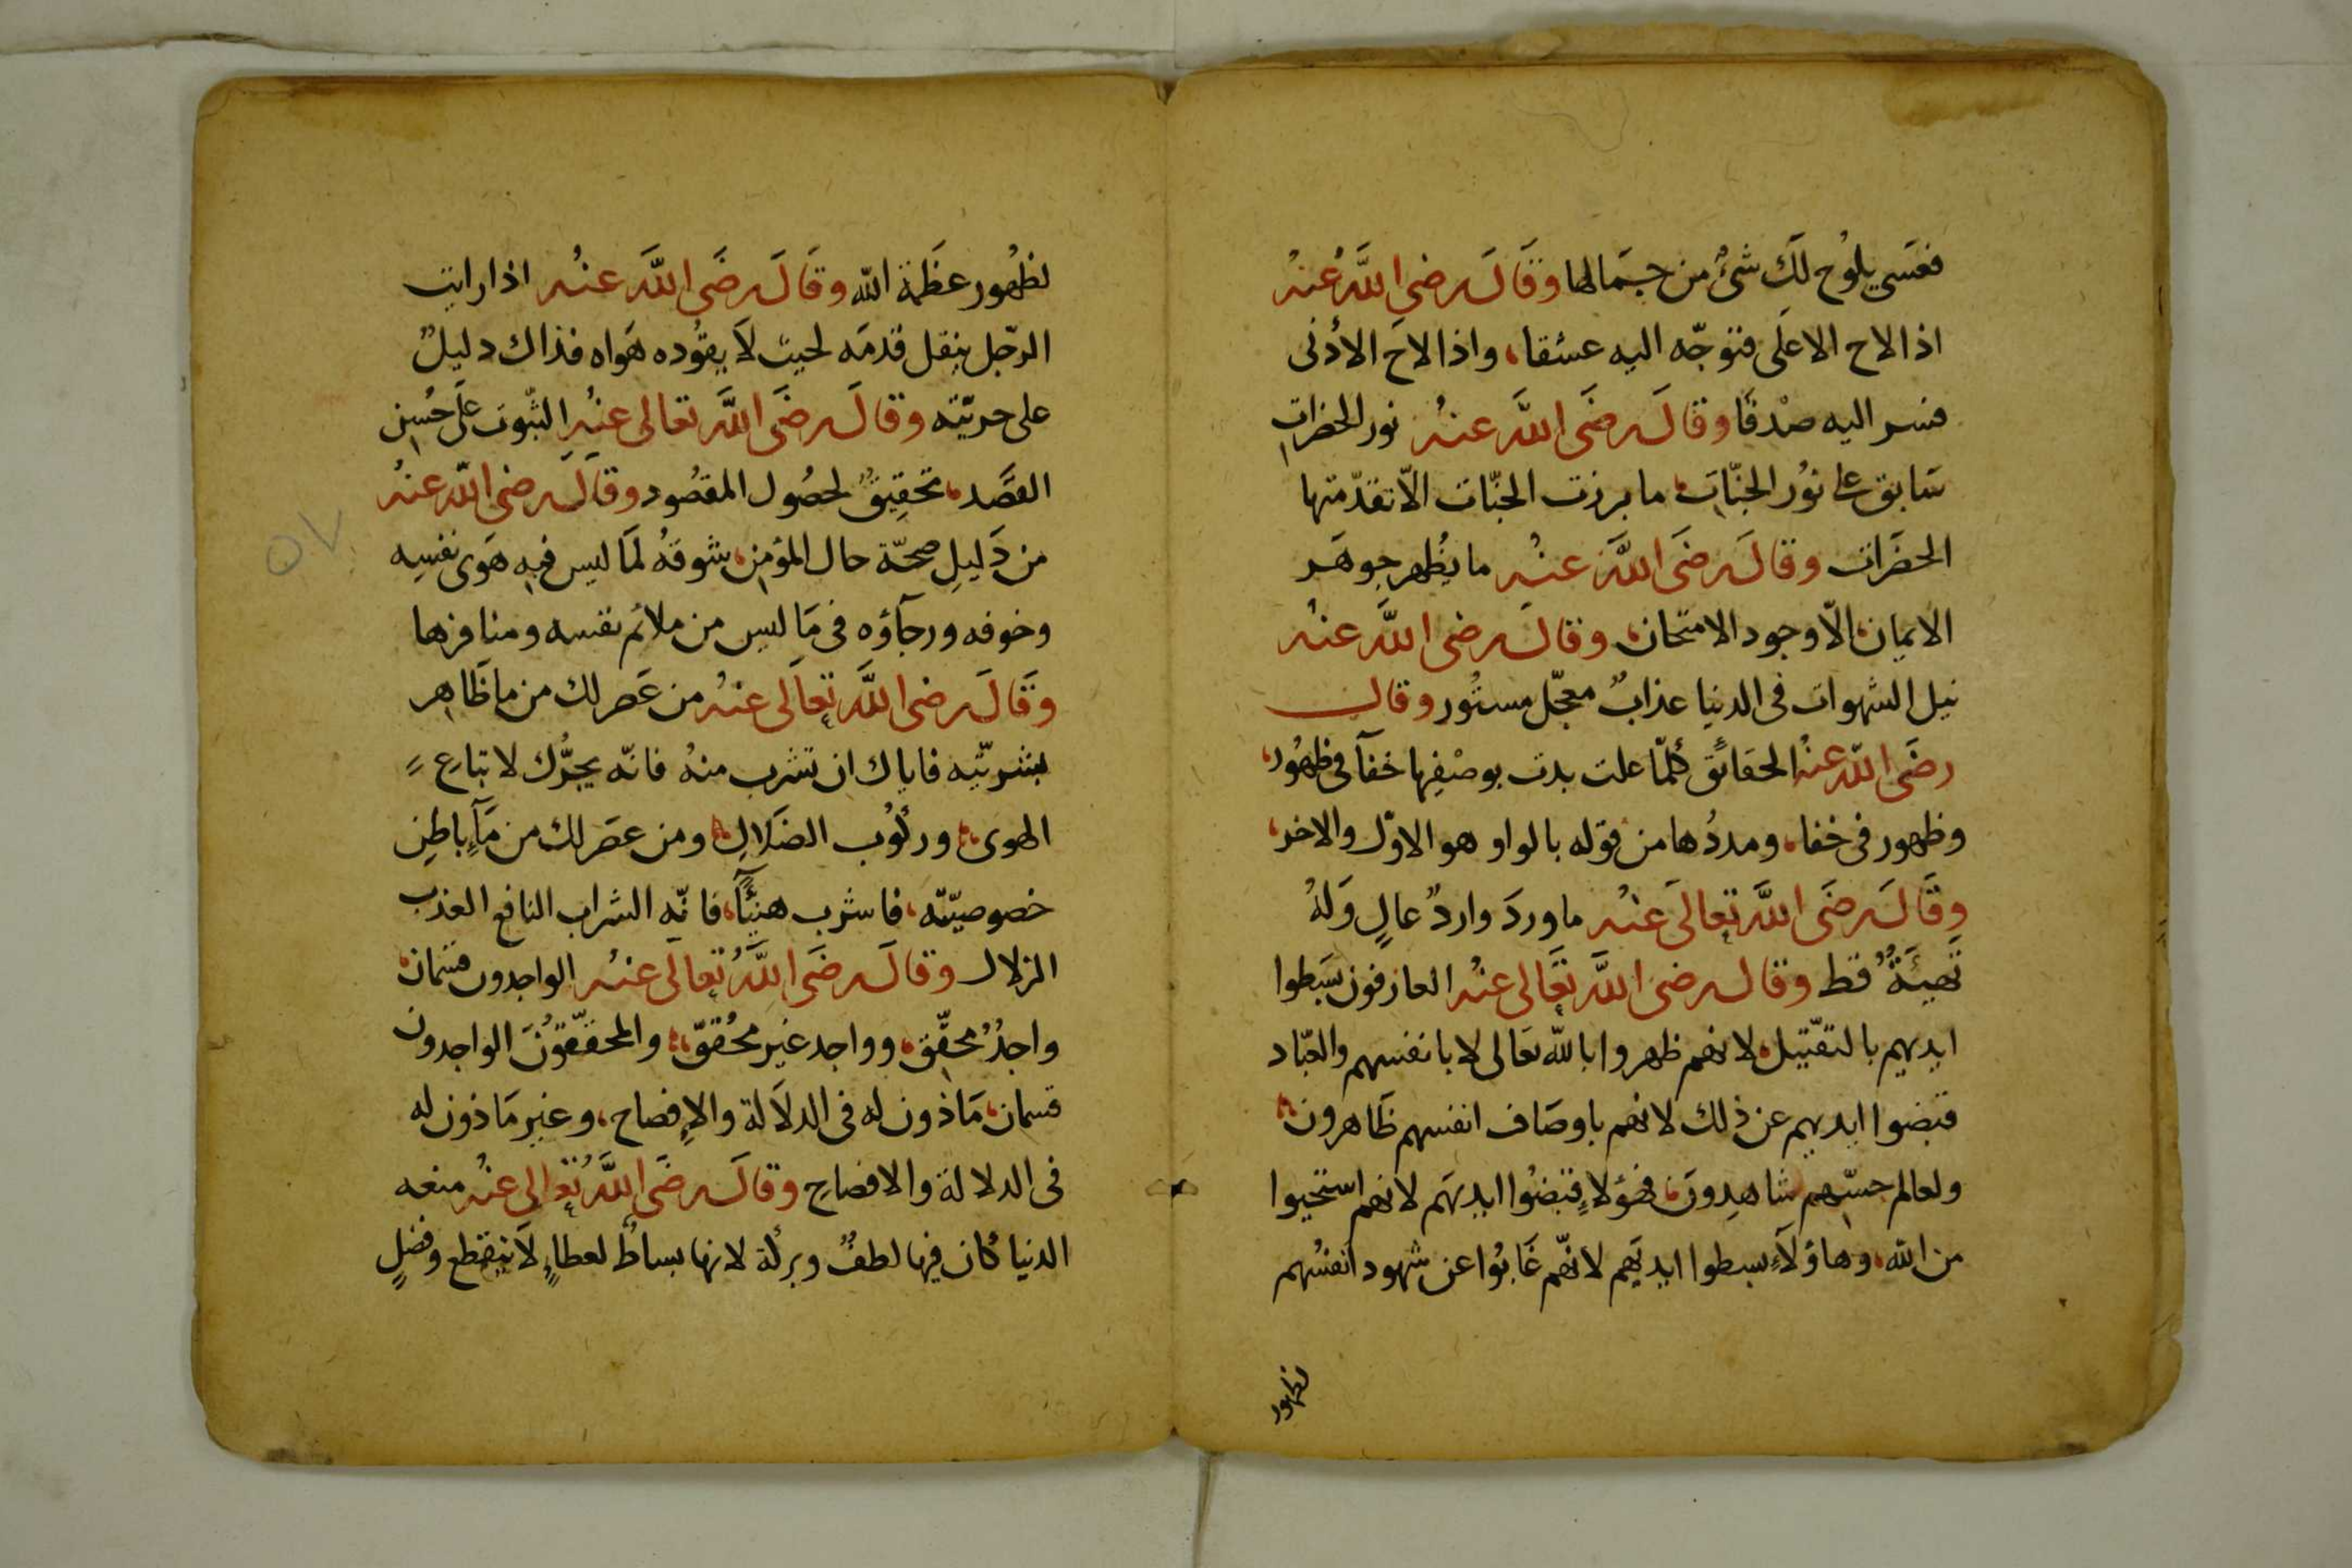 فعَسَى يلوُح لَكَ شئٌ من جمَالها وقَالَ رضى اللَّهُ عنهُ
اذا لاح الاعلَى فتوجّه اليه عشقا، واذا لاحَ الأدنى
فسر اليه صدْقًا وقالَ رضَى اللَّه عنهُ نور الحضرات
سَابق على نوُر الجنّات، ما برزت الجنّات الّا تقدّمتها
الحضَرات وقالَ رضَى اللَّهَ عنهُ ما يظُهر جوهَر
الايمان، الّا وجود الامتحان، وقالَ رضى اللَّه عنهُ
نيل الشهوات فى الدنيا عذابٌ معجّل مستُور وقال
رضَى اللّه عنهُ الحقائق كُلمّا علت بدت بوصْفِها خفآ فى ظهُور،
وظهور فى خفا، ومددُها من قوله بالواو هو الاوّل والاخر،
وقَالَ رضَى اللَّه تعالَى عنهُ ما وردَ واردٌ عالٍ وَلهُ
تَهيئَةٌ قط وقال رضىَ اللَّه تعَالى عنهُ العارفون بسَطوا
ايديهم بالتقبّيل، لانهم ظهروا بالله تعَالى لا بانفسهم والعبّاد
قبضوا ايديهم عن ذلك لانهم باوصَاف انفسهم ظَاهرون،
ولعالم حسّهم شاهِدوَن، فهؤلاءِ قبضُوا ايديهَم لانهم استحيوا
من الله، وهاؤلَآءِ بسطوا ايديَهم لانّهم غَابُوا عن شهود انفسُهم
لظهور
لظُهُور عظَمة اللّه وقَالَ رضَى اللَّهَ عنهُ اذا رايت
الرجّل ينقل قدمَه لحيث لَا يقوُده هَواه فذاك دليلٌ
على حريّته وقالَ رضَى اللَّهَ تعالى عنهُ الثّبوت على حُسِن
القصَّد، تحقِيقٌ لحصُول المقصُود وقاَلَ رضى اللّه عنهُ
من دَليلِ صحّة حال المؤمن، شوقهُ لمَا ليس فيه هَوى نفسِه
وخوفه ورجآؤه فى مَا ليس من ملائم نفسه ومنافرها
وقَالَ رضى اللَّه تعاَلَى عنهُ من عَصر لك من ما ظَاهِر
بشريّتِه فاياك ان تشرب منهُ فانّه يجرُّك لاتباعِ
الهوى، وركُوُب الضَلالِ، ومن عصَر لك من مآءِ باطِنِ
خصوصيّته، فاشرب هنيئًآ، فانّه الشراب النافع العذب
الزلال وقالَ رضَى اللَّهُ تعالَى عنهُ الواجدون قسمان،
واجدٌ محقّق، وواجد غير محُققّ، والمحقّقوُنَ الواجدون
قسمان، مَاذون له فى الدلَالة والإِفصاح، وغير مَاذون له
فى الدلالة والافصَاحِ وقالَ رضَى اللَّهُ تعالى عنهُ منعه
الدنيا كان فيها لطفٌ وبركة لانها بساطٌ لعطاءٍ لَا ينقطع وفضلٍ